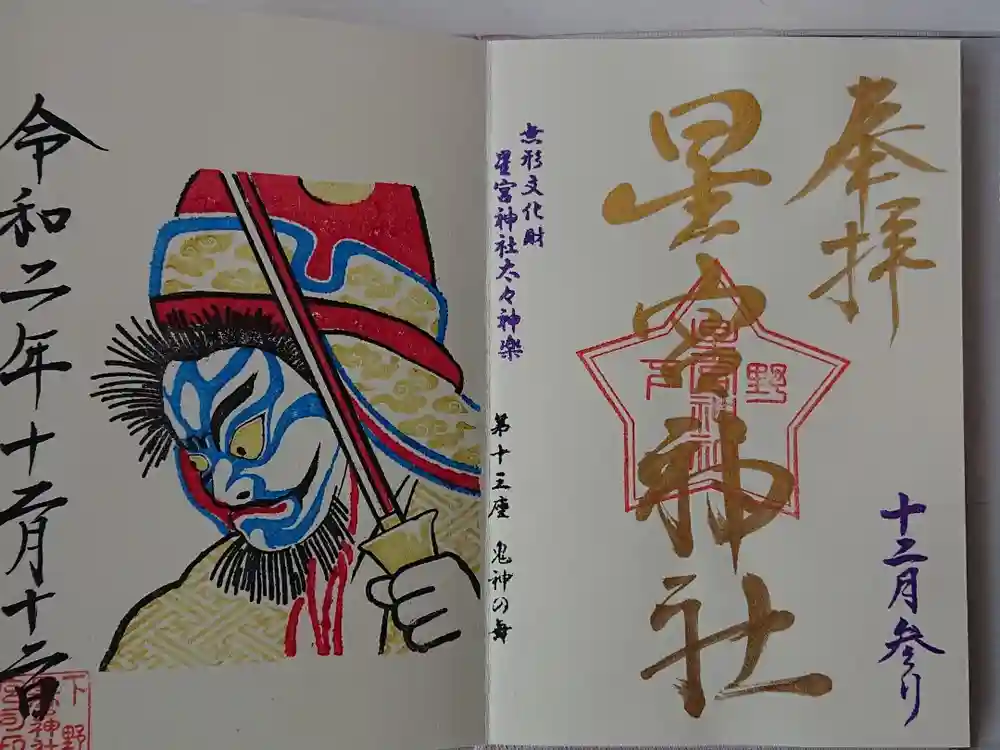 奉拝
星宮神社
十二月参り
無形文化財
星宮神社太々神楽
第十三座 鬼神の舞
令和二年十二月十二日
下野